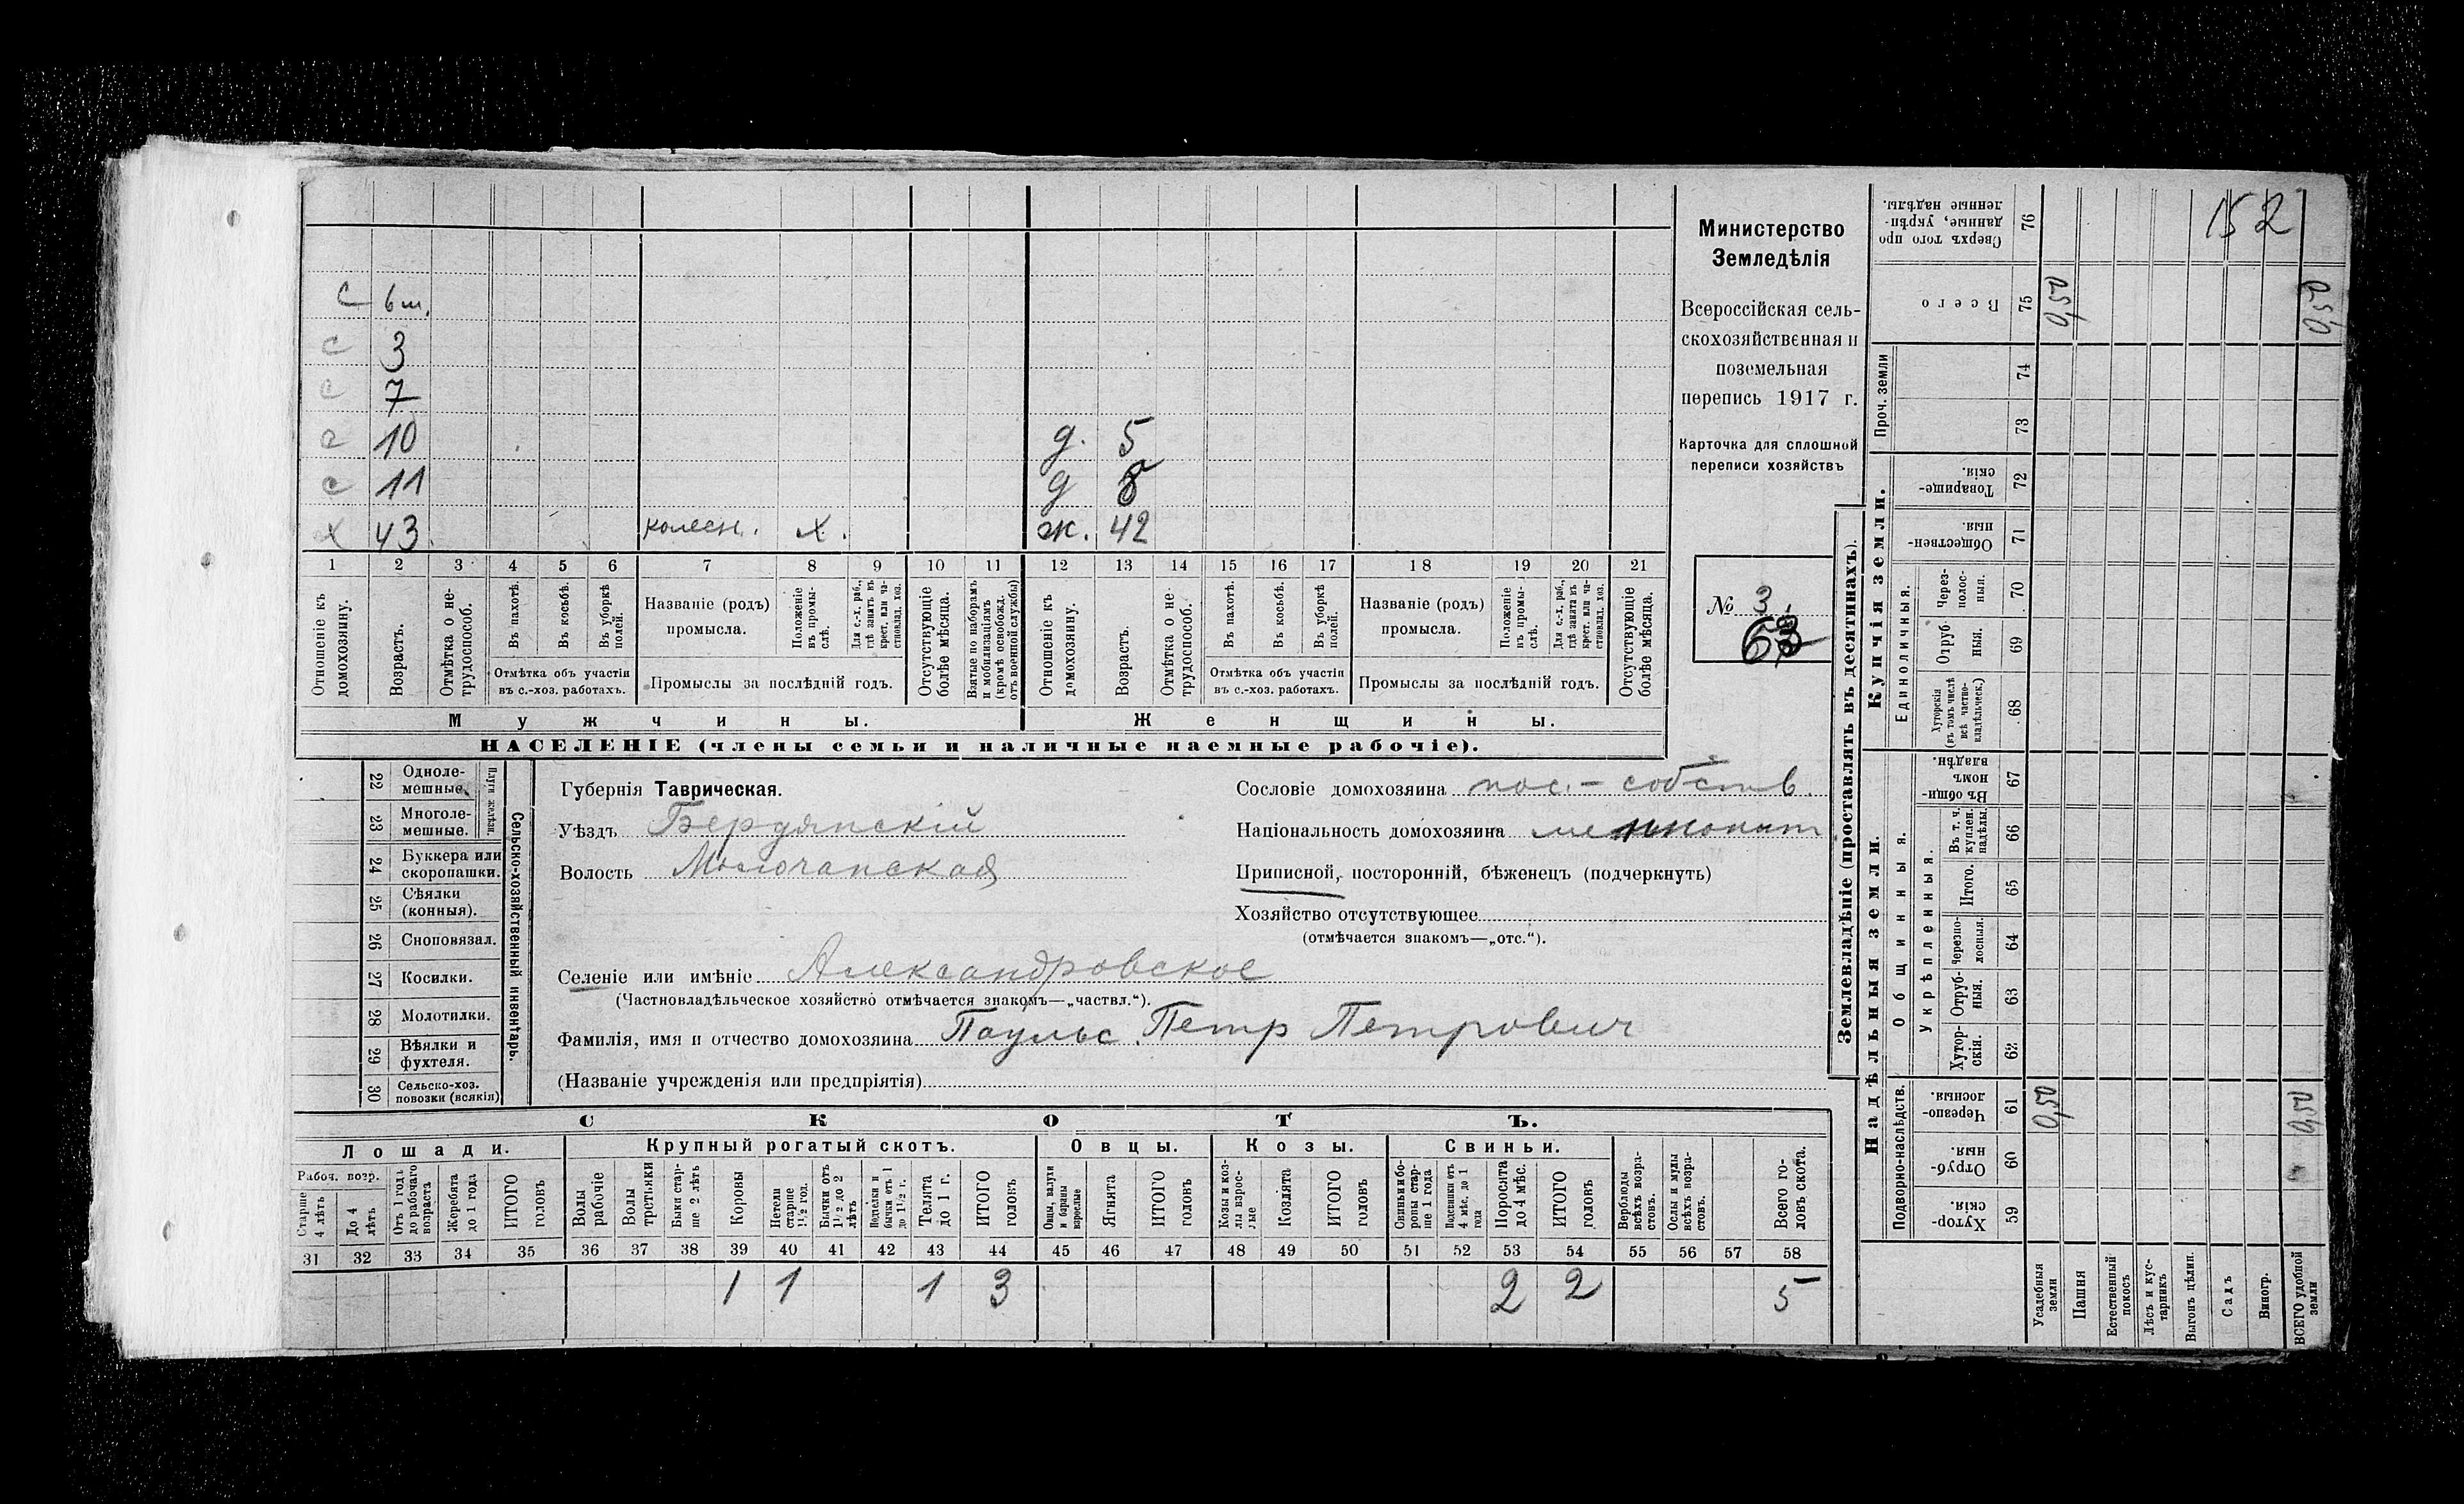 152
С 6 м.
с 3
с 7
с 10 д. 5
с 11 д 8
х 43. колесн. х. ж. 42
1 2 3 4 5 6 7 8 9 10 11 12 13 14 15 16 17 18 19 20 21
Отношеніе къ домохозяину.
Возрастъ.
Отмѣтка о не-
трудоспособ.
Въ пахотѣ.
Въ косьбѣ.
Въ уборкѣ
полей.
Отмѣтка объ участіи
въ с.-хоз. работахъ.
Названіе (родъ)
промысла.
Положеніе
въ промы-
слѣ.
Для с.-х. раб.,
гдѣ занятъ въ
крест. или ча-
стновлад. хоз.
Промыслы за послѣдній годъ.
Отсутствующіе
болѣе мѣсяца.
Взятые по наборамъ
и мобилизаціямъ
(кромѣ освобожд.
отъ военной службы)
Отношеніе къ
домохозяину.
Возрастъ.
Отмѣтка о не-
трудоспособ.
Въ пахотѣ.
Въ косьбѣ.
Въ уборкѣ
полей.
Отмѣтка объ участіи
въ с.-хоз. работахъ.
Названіе (родъ)
промысла.
Положеніе
въ промы-
слѣ.
Для с.-х. раб.,
гдѣ занята въ
крест. или ча-
стновлад. хоз.
Промыслы за послѣдній годъ.
Отсутствующіе
болѣе мѣсяца.
Мужчины. Женщины.
НАСЕЛЕНІЕ (члены семьи и наличные наемные рабочіе).
Министерство
Земледѣлія
Всероссійская сель-
скохозяйственная и
поземельная
перепись 1917 г.
Карточка для сплошной
переписи хозяйствъ
№ 3.
63
22 Одноле-
мешные.
23 Многоле-
мешные.
Плуги желѣзн.
24 Буккера или
скоропашки.
25 Сѣялки
(конныя).
26 Сноповязал.
27 Косилки.
28 Молотилки.
29 Вѣялки и
фухтеля.
30 Сельско-хоз.
повозки (всякія)
Сельско-хозяйственный инвентарь.
Губернія Таврическая.
Уѣздъ Бердянскій
Волость Молочанская
Сословіе домохозяина пос.- собств.
Національность домохозяина меннонит
Приписной, посторонній, бѣженецъ (подчеркнуть)
Хозяйство отсутствующее
(отмѣчается знакомъ—„отс.“).
Селеніе или имѣніе Александровское
(Частновладѣльческое хозяйство отмѣчается знакомъ—„частвл.“).
Фамилія, имя и отчество домохозяина Паульс Петр Петрович
(Названіе учрежденія или предпріятія)
СКОТЪ.
Лошади. Крупный рогатый скотъ. Овцы. Козы. Свиньи.
Рабоч. возр.
Старше
4 лѣтъ
До 4
лѣтъ
Отъ 1 года
до рабочаго
возраста
Жеребята
до 1 года
ИТОГО
головъ
Волы
рабочіе
Волы
третьяки
Быки стар-
ше 2 лѣтъ
Коровы
Нетели
старше
1½ год.
Бычки отъ
1½ до 2
лѣтъ
Подтелки и
бычки отъ 1
до 1½ г.
Телята
до 1 г.
ИТОГО
головъ
Овцы, валухи
и бараны
взрослые
Ягнята
ИТОГО
головъ
Козы и коз-
лы взрос-
лые
Козлята
ИТОГО
головъ
Свиньи и бо-
ровы стар-
ше 1 года
Подсвинки отъ
4 мѣс. до 1
года
Поросята
до 4 мѣс.
ИТОГО
головъ
Верблюды
всѣхъ возра-
стовъ.
Ослы и мулы
всѣхъ возра-
стовъ.
Всего го-
ловъ скота.
31 32 33 34 35 36 37 38 39 40 41 42 43 44 45 46 47 48 49 50 51 52 53 54 55 56 57 58
1 1 1 3 2 2 5
Землевладѣніе (проставлять въ десятинахъ).
Надѣльныя земли. Купчія земли. Проч. земли
Подворно-наслѣдств. Общинныя. Единоличныя.
Укрѣпленныя.
Хутор-
скія.
59
Отруб-
ныя.
60
Черезпо-
лосныя.
61
Хутор-
скія.
62
Отруб-
ныя.
63
Черезпо-
лосныя.
64
Итого.
65
Въ т. ч.
куплен.
надѣлы.
66
Въ общи-
номъ
владѣн.
67
Хуторскія
(въ томъ числѣ
всѣ частно-
владѣльческ.)
68
Отруб-
ныя.
69
Через-
полос-
ныя.
70
Обществен-
ныя.
71
Товарище-
скія.
72
73
74
Всего
75
Сверхъ того про
данные, укрѣп-
ленные надѣлы.
76
Усадебныя
земли
0,50 0,50
Пашня
Естественный
покосъ
Лѣсъ и кус-
тарникъ
Выгонъ цѣлин.
Садъ
Виногр.
ВСЕГО удобной
земли
0,50 0,50